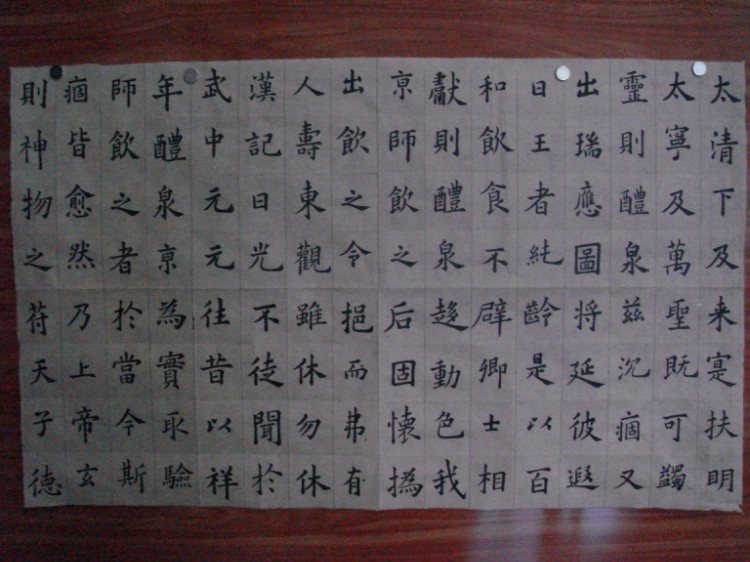 太清下及来寔扶明
太寧及萬聖既可蠲
靈則醴泉兹沉痼又
出瑞應圖将延彼遐
曰王者純齡是以百
和飲食不辟卿士相
獻則醴泉趍動色我
亰師飲之后固懷撝
出飲之令挹而弗有
人壽東觀雖休勿休
漢記曰光不徒聞於
武中元元往昔以祥
年醴泉亰為實取驗
師飲之者於當今斯
痼皆愈然乃上帝玄
則神物之苻天子德